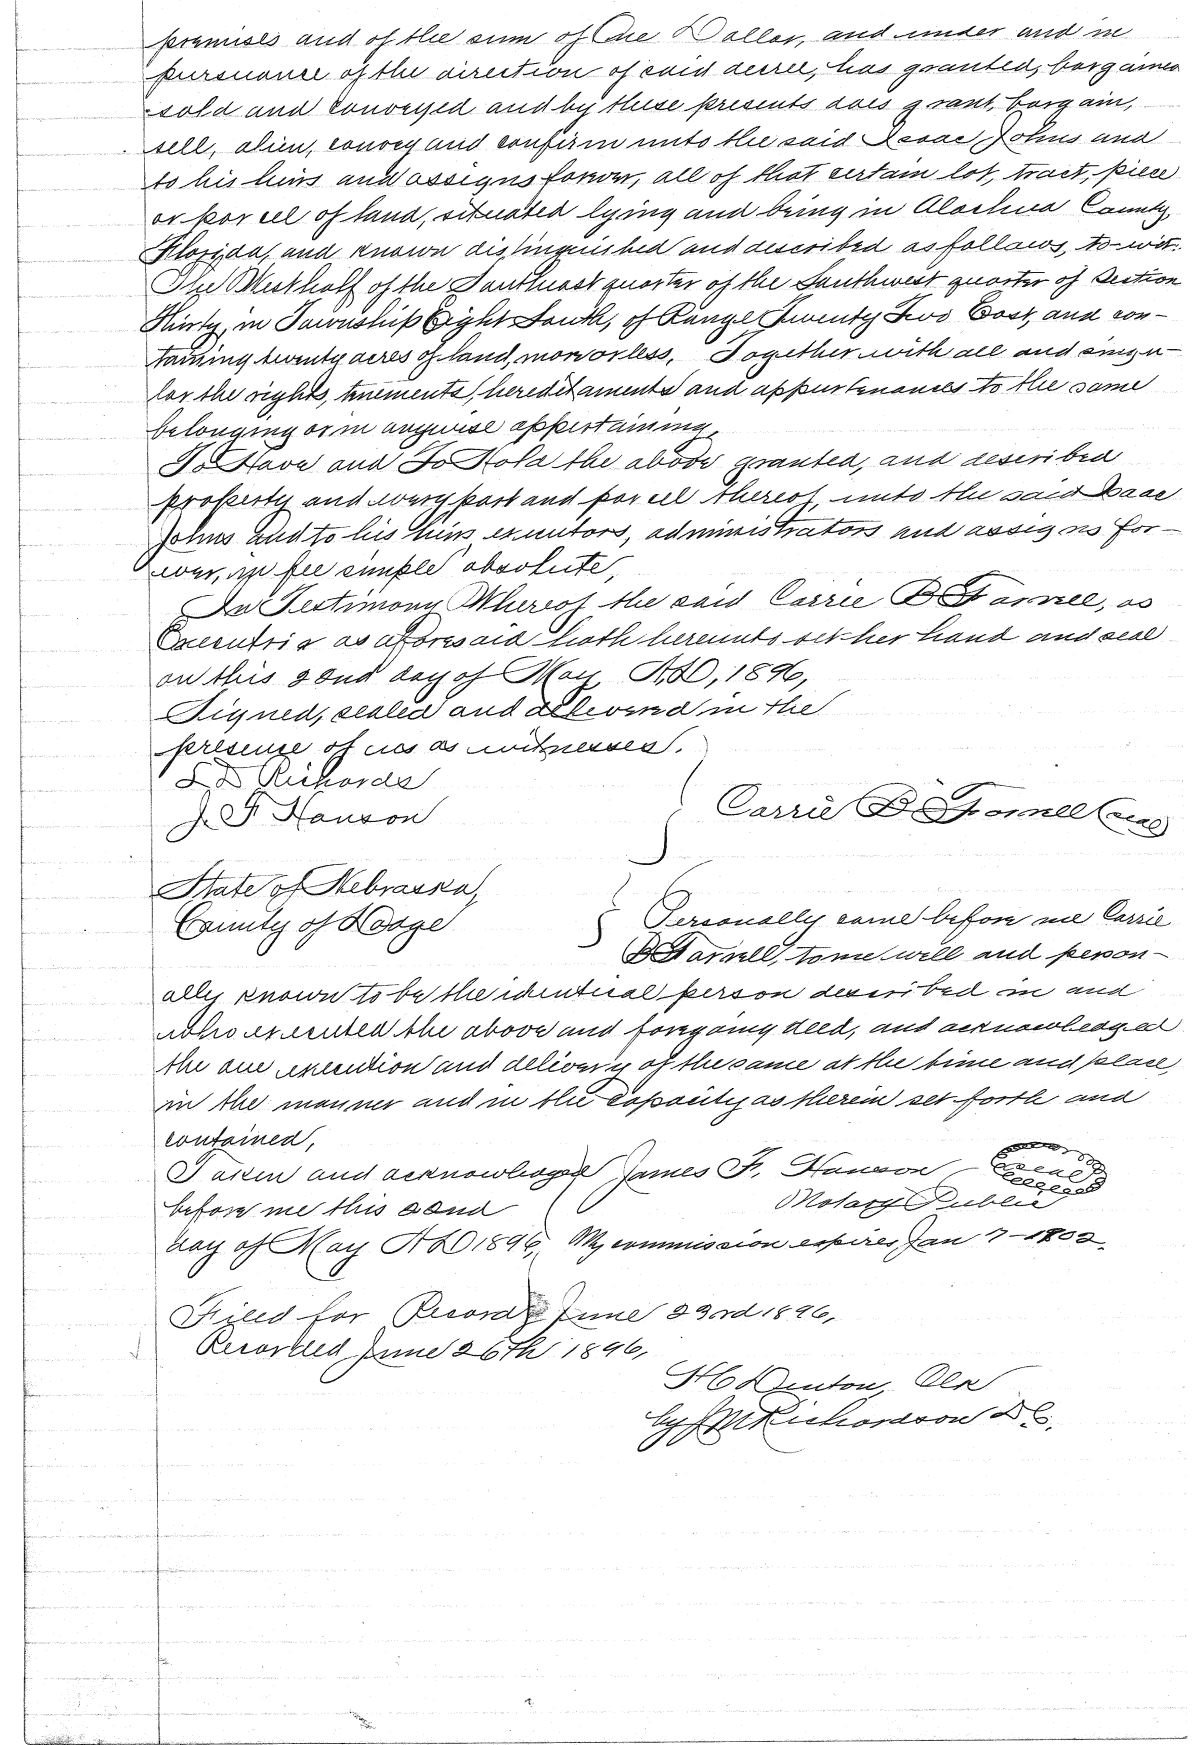 premises and of the sum of One Dollar, and under and in
pursuance of the direction of said decree, has granted, bargained
sold and conveyed and by these presents does grant, bargain,
sell, alien, convey and confirm unto the said Isaac Johns and
to his heirs and assigns forever, all of that certain lot, tract, piece
or parcel of land, situated lying and being in Alachua County,
Florida, and known distinguished and described as follows, to-wit:
The West half of the Southeast quarter of the Southwest quarter of Section
Thirty, in Township Eight South, of Range Twenty Two East, and con-
taining twenty acres of land, more or less, Together with all and singu-
lar the rights, tenements, hereditaments and appurtenances to the same
belonging or in anywise appertaining,
To Have and To Hold the above granted, and described
property and every part and parcel thereof, unto the said Isaac
Johns and to his heirs executors, administrators and assigns for-
ever, in fee simple absolute,
In Testimony Whereof the said Carrie B Farnell, as
Executrix as aforesaid hath hereunto set her hand and seal
on this 22nd day of May A.D, 1896,
Signed, sealed and delivered in the
presence of us as witnesses.
L D Richards
J. F Hanson
Carrie B Farnell (seal)
State of Nebraska,
County of Dodge
Personally came before me Carrie
B Farnell, to me well and person-
ally known to be the identical person described in and
who executed the above and foregoing deed, and acknowledged
the due execution and delivery of the same at the time and place,
in the manner and in the capacity as therein set forth and
contained,
Taken and acknowledged James F. Hanson - Seal
before me this 22nd Notary Public
day of May A D 1896, My commission expires Jan 7 - 1802.
Filed for Record June 23rd 1896,
Recorded June 26th 1896,
H C Denton, Clk
by J M Richardson D C.